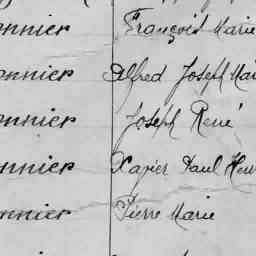 onnier François Marie
onnier Alfred Joseph Mar
onnier Joseph René
onnier Xavier Paul Henr
onnier Pierre Marie